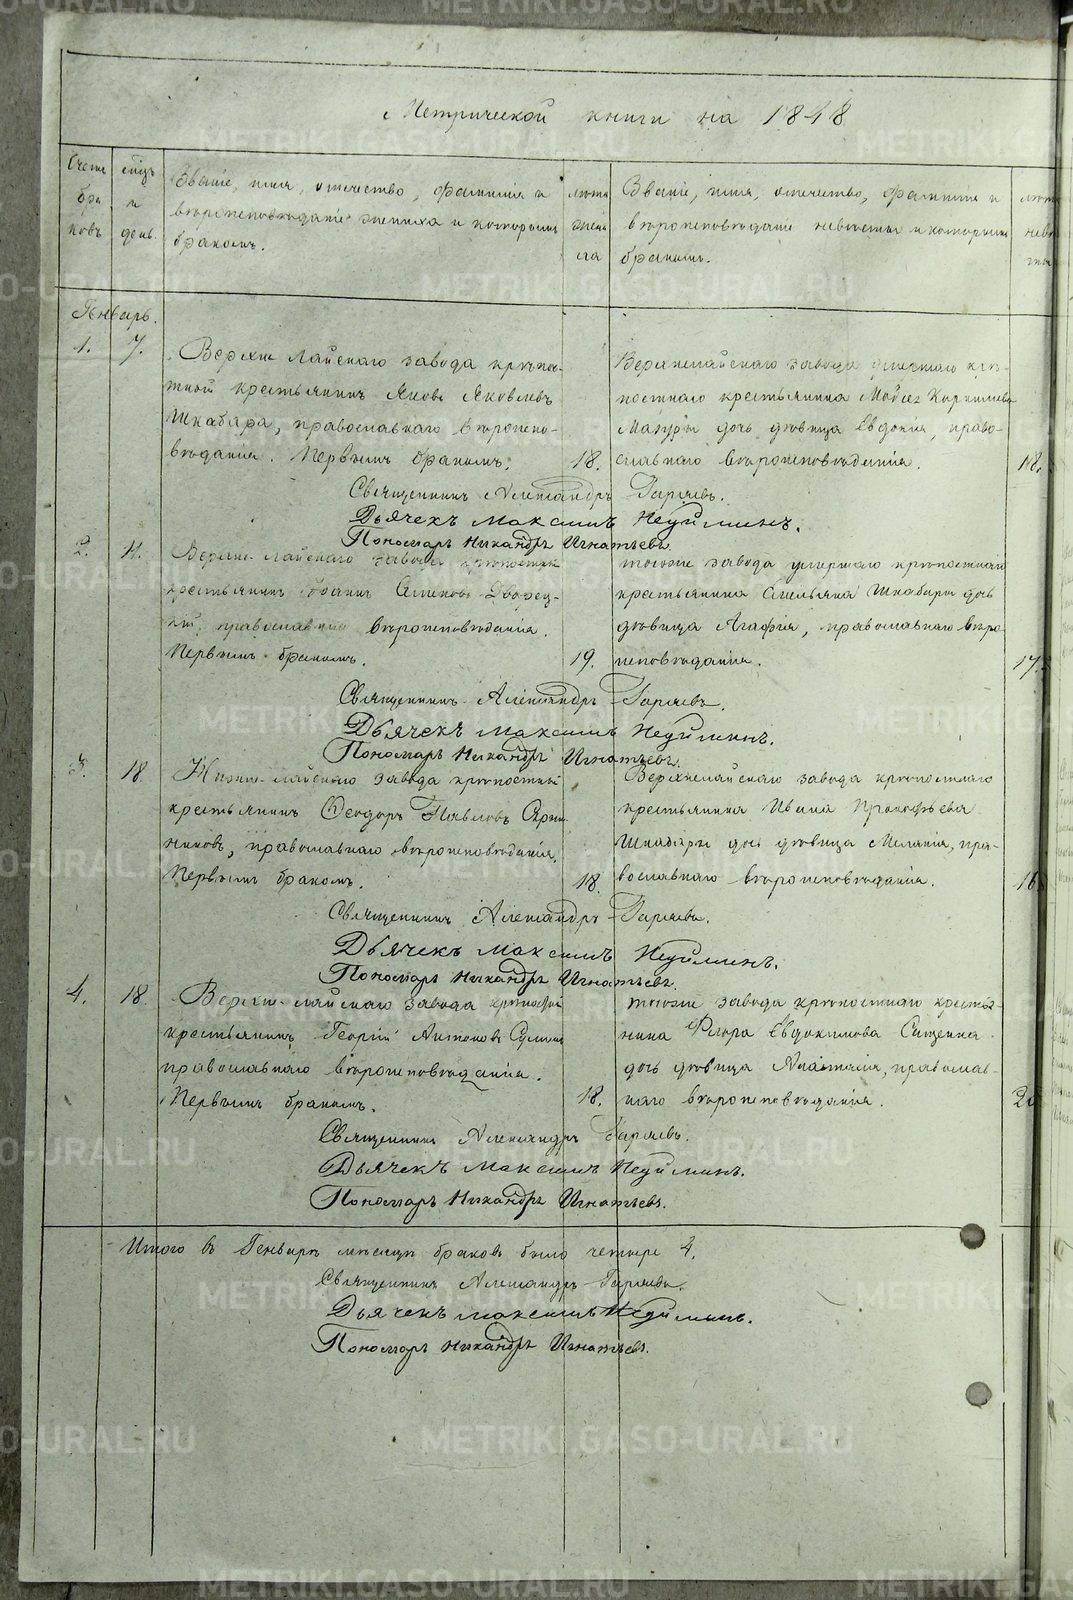 Метрической книги на 1848
Счетъ браковъ
мѣсяцъ и день
Званіе, имя, отчество, фамилія и
вѣроисповѣданіе жениха и которымъ
бракомъ.
лѣта жениха
Званіе, имя, отчество, фамилія и
вѣроисповѣданіе невѣсты и которымъ
бракомъ.
лѣта невѣсты
Генварь.
1. 7.
Верхне-лайскаго завода крѣпос-
тной крестьянинъ Яковъ Яковлевъ
Шкабара, православнаго вѣроиспо-
вѣданія. Первымъ бракомъ.
18.
Верхнелайскаго завода крѣ-
постнаго крестьянина
Мазуры дочь дѣвица Евдокия, право-
славнаго вѣроисповѣданія.
18.
Священникъ Александръ Гаряевъ.
Дьячекъ Максимъ Неуйминъ.
Пономарь Никандръ Игнатьевъ.
2. 11.
Верхне-лайскаго завода крѣпостный
крестьянинъ Семеновъ Дворец-
кій, православнаго вѣроисповѣданія.
Первымъ бракомъ.
19.
тогоже завода умершаго крѣпостнаго
крестьянина Емельяна Шкабары дочь
дѣвица Агафія, православнаго вѣро-
исповѣданія.
17.
Священникъ Александръ Гаряевъ.
Дьячекъ Максимъ Неуйминъ.
Пономарь Никандръ Игнатьевъ.
3. 18
Нижне-лайскаго завода крѣпостный
крестьянинъ Ѳеодоръ Павловъ
православнаго вѣроисповѣданія,
Первымъ бракомъ.
18.
Верхнелайскаго завода крѣпостнаго
крестьянина Ивана Прокофьева
Шкабары дочь дѣвица Меланія, пра-
вославнаго вѣроисповѣданія.
16
Священникъ Александръ Гаряевъ.
Дьячекъ Максимъ Неуйминъ.
Пономарь Никандръ Игнатьевъ.
4. 18.
Верхне-лайскаго завода крѣпостной
крестьянинъ Георгій Антоновъ
православнаго вѣроисповѣданія.
Первымъ бракомъ.
18.
тогоже завода крѣпостнаго крестья-
нина Флора Евдокимова Сищенка
дочь дѣвица Анастасія, православ-
наго вѣроисповѣданія.
Священникъ Александръ Гаряевъ.
Дьячекъ Максимъ Неуйминъ.
Пономарь Никандръ Игнатьевъ.
Итого въ Генварѣ мѣсяцѣ браковъ было четыре 4.
Священникъ Александръ Гаряевъ.
Дьячекъ Максимъ Неуйминъ.
Пономарь Никандръ Игнатьевъ.
METRIKI.GASO-URAL.RU